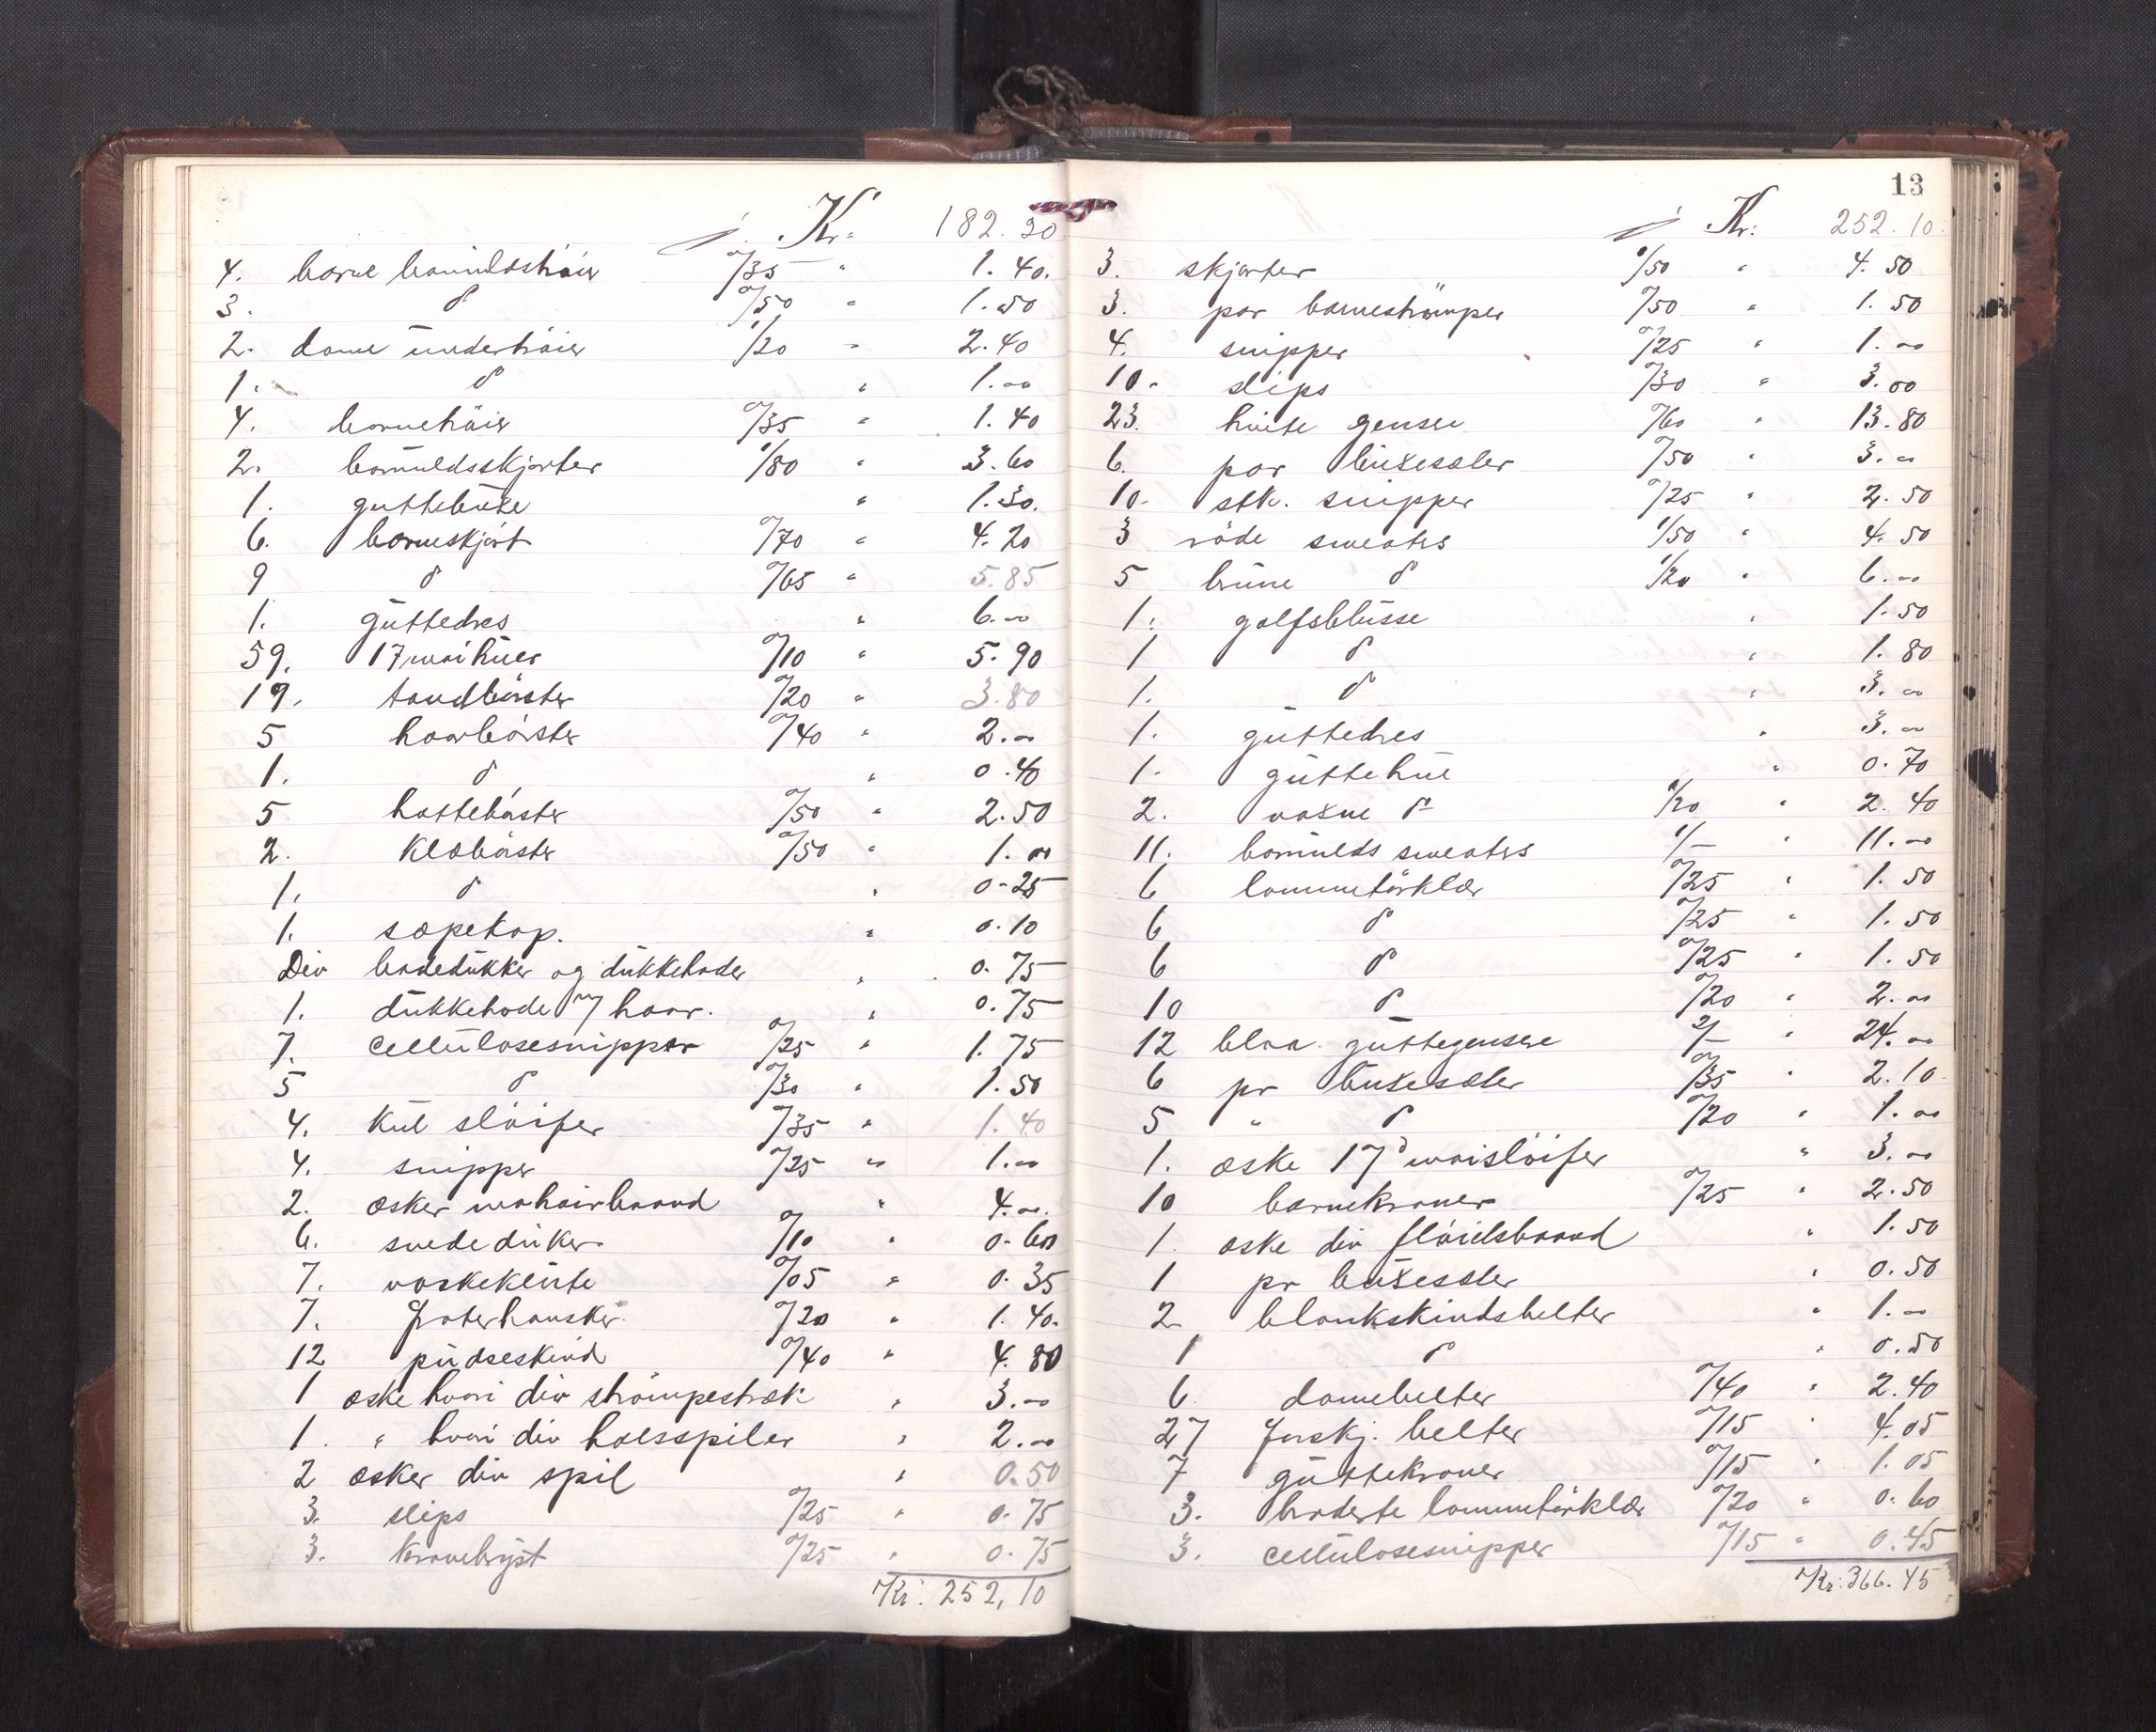 Kr: 182.30
4. barne bomuldstrøier 0/35 " 1.40.
3. do 0/50 " 1.50
2. dame undertrøier 1/20 " 2.40
1. do " 1.00
4. barnetrøier 0/35 " 1.40
2. bomuldsskjorter 1/80 " 3.60
1. guttebuxe " 1.30.
6. barneskjørt 0/70 " 4.20
9 do 0/65 " 5.85
1. guttedres " 6.00
59. 17 mai huer 0/10 " 5.90
19. tandbørster 0/20 " 3.80
5 haarbørster 0/40 " 2.00
1. do " 0.40
5 hattebørster 0/50 " 2.50
2. klæbørster 0/50 " 1.00
1. do " 0.25
1. sæpekop. " 0.10
Div badedukker og dukkehoder " 0.75
1. dukkehode m/ haar. " 0.75
7. cellulosesnipper 0/25 " 1.75
5 do 0/30 " 1.50
4. kul sløifer 0/35 " 1.40
4. snipper 0/25 " 1.00
2. æsker mohairbaand " 4.00.
6. snededuker 0/10 " 0.60
7. vaskeklute 0/05 " 0.35
7. froterhansker 0/20 " 1.40.
12 pudseskind 0/40 " 4.80
1 æske hvori div strømpestræk " 3.00
1. " hvori div halsspiler " 2.00
2 æsker div spil " 0.50
3. slips 0/25 " 0.75
3. kravebryst 0/25 " 0.75
Kr: 252,10
13
Kr: 252.10.
3. skjorter 1/50 " 4.50
3. par barnestrømper 0/50 " 1.50
4. snipper 0/25 " 1.00
10. slips 0/30 " 3.00
23. hvite gensere 0/60 " 13.80
6. par buxesæler 0/50 " 3.00
10. stk. snipper 0/25 " 2.50
3 røde sweaters 1/50 " 4.50
5 brune do 1/20 " 6.00
1. golfsbluse " 1.50
1 do " 1.80
1. do " 3.00
1. guttedres " 3.00
1. guttehue " 0.70
2. voxne do 1/20 " 2.40
11. bomulds sweaters 1/- " 11.00
6 lommetørklær 0/25 " 1.50
6 do 0/25 " 1.50
6 do 0/25 " 1.50
10 do 0/20 " 2.00
12 blaa guttegensere 2/- " 24.00
6 pr buxesæler 0/35 " 2.10
5 " do 0/20 " 1.00
1. æske 17d maisløifer " 3.00
10 barnekraver 0/25 " 2.50
1. æske div fløielsbaand " 1.50
1 pr buxesæler " 0.50
2 blankskindsbelter " 1.00
1 do " 0.50
6 damebelter 0/40 " 2.40
27 forskj. belter 0/15 " 4.05
7 guttekraver 0/15 " 1.05
3. broderte lommetørklær 0/20 " 0.60
3. cellulosesnipper 0/15 " 0.45
Kr: 366.45